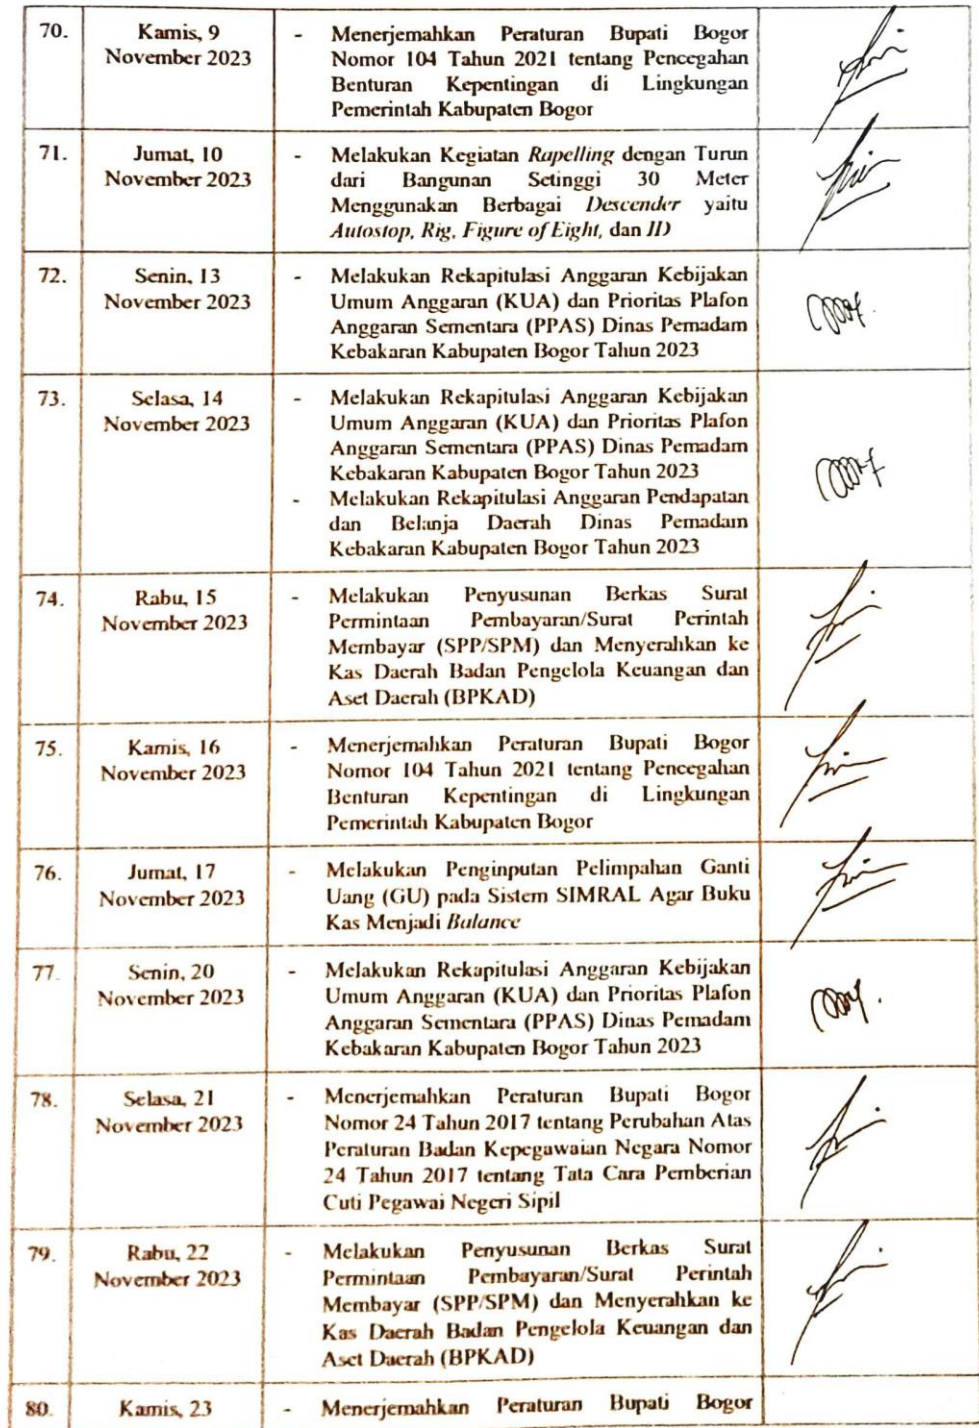 70. Kamis, 9 - Menerjemahkan Peraturan Bupati Bogor
November 2023 Nomor 104 Tahun 2021 tentang Pencegahan
Benturan Kepentingan di Lingkungan
Pemerintah Kabupaten Bogor
71. Jumat, 10 - Melakukan Kegiatan Rapelling dengan Turun
November 2023 dari Bangunan Setinggi 30 Meter
Menggunakan Berbagai Descender yaitu
Autostop, Rig, Figure of Eight, dan ID
72. Senin, 13 - Melakukan Rekapitulasi Anggaran Kebijakan
November 2023 Umum Anggaran (KUA) dan Prioritas Plafon
Anggaran Sementara (PPAS) Dinas Pemadam
Kebakaran Kabupaten Bogor Tahun 2023
73. Selasa, 14 - Melakukan Rekapitulasi Anggaran Kebijakan
November 2023 Umum Anggaran (KUA) dan Prioritas Plafon
Anggaran Sementara (PPAS) Dinas Pemadam
Kebakaran Kabupaten Bogor Tahun 2023
- Melakukan Rekapitulasi Anggaran Pendapatan
dan Belanja Daerah Dinas Pemadam
Kebakaran Kabupaten Bogor Tahun 2023
74. Rabu, 15 - Melakukan Penyusunan Berkas Surat
November 2023 Permintaan Pembayaran/Surat Perintah
Membayar (SPP/SPM) dan Menyerahkan ke
Kas Daerah Badan Pengelola Keuangan dan
Aset Daerah (BPKAD)
75. Kamis, 16 - Menerjemahkan Peraturan Bupati Bogor
November 2023 Nomor 104 Tahun 2021 tentang Pencegahan
Benturan Kepentingan di Lingkungan
Pemerintah Kabupaten Bogor
76. Jumat, 17 - Melakukan Penginputan Pelimpahan Ganti
November 2023 Uang (GU) pada Sistem SIMRAL Agar Buku
Kas Menjadi Balance
77. Senin, 20 - Melakukan Rekapitulasi Anggaran Kebijakan
November 2023 Umum Anggaran (KUA) dan Prioritas Plafon
Anggaran Sementara (PPAS) Dinas Pemadam
Kebakaran Kabupaten Bogor Tahun 2023
78. Selasa, 21 - Menerjemahkan Peraturan Bupati Bogor
November 2023 Nomor 24 Tahun 2017 tentang Perubahan Atas
Peraturan Badan Kepegawaian Negara Nomor
24 Tahun 2017 tentang Tata Cara Pemberian
Cuti Pegawai Negeri Sipil
79. Rabu, 22 - Melakukan Penyusunan Berkas Surat
November 2023 Permintaan Pembayaran/Surat Perintah
Membayar (SPP/SPM) dan Menyerahkan ke
Kas Daerah Badan Pengelola Keuangan dan
Aset Daerah (BPKAD)
80. Kamis, 23 - Menerjemahkan Peraturan Bupati Bogor